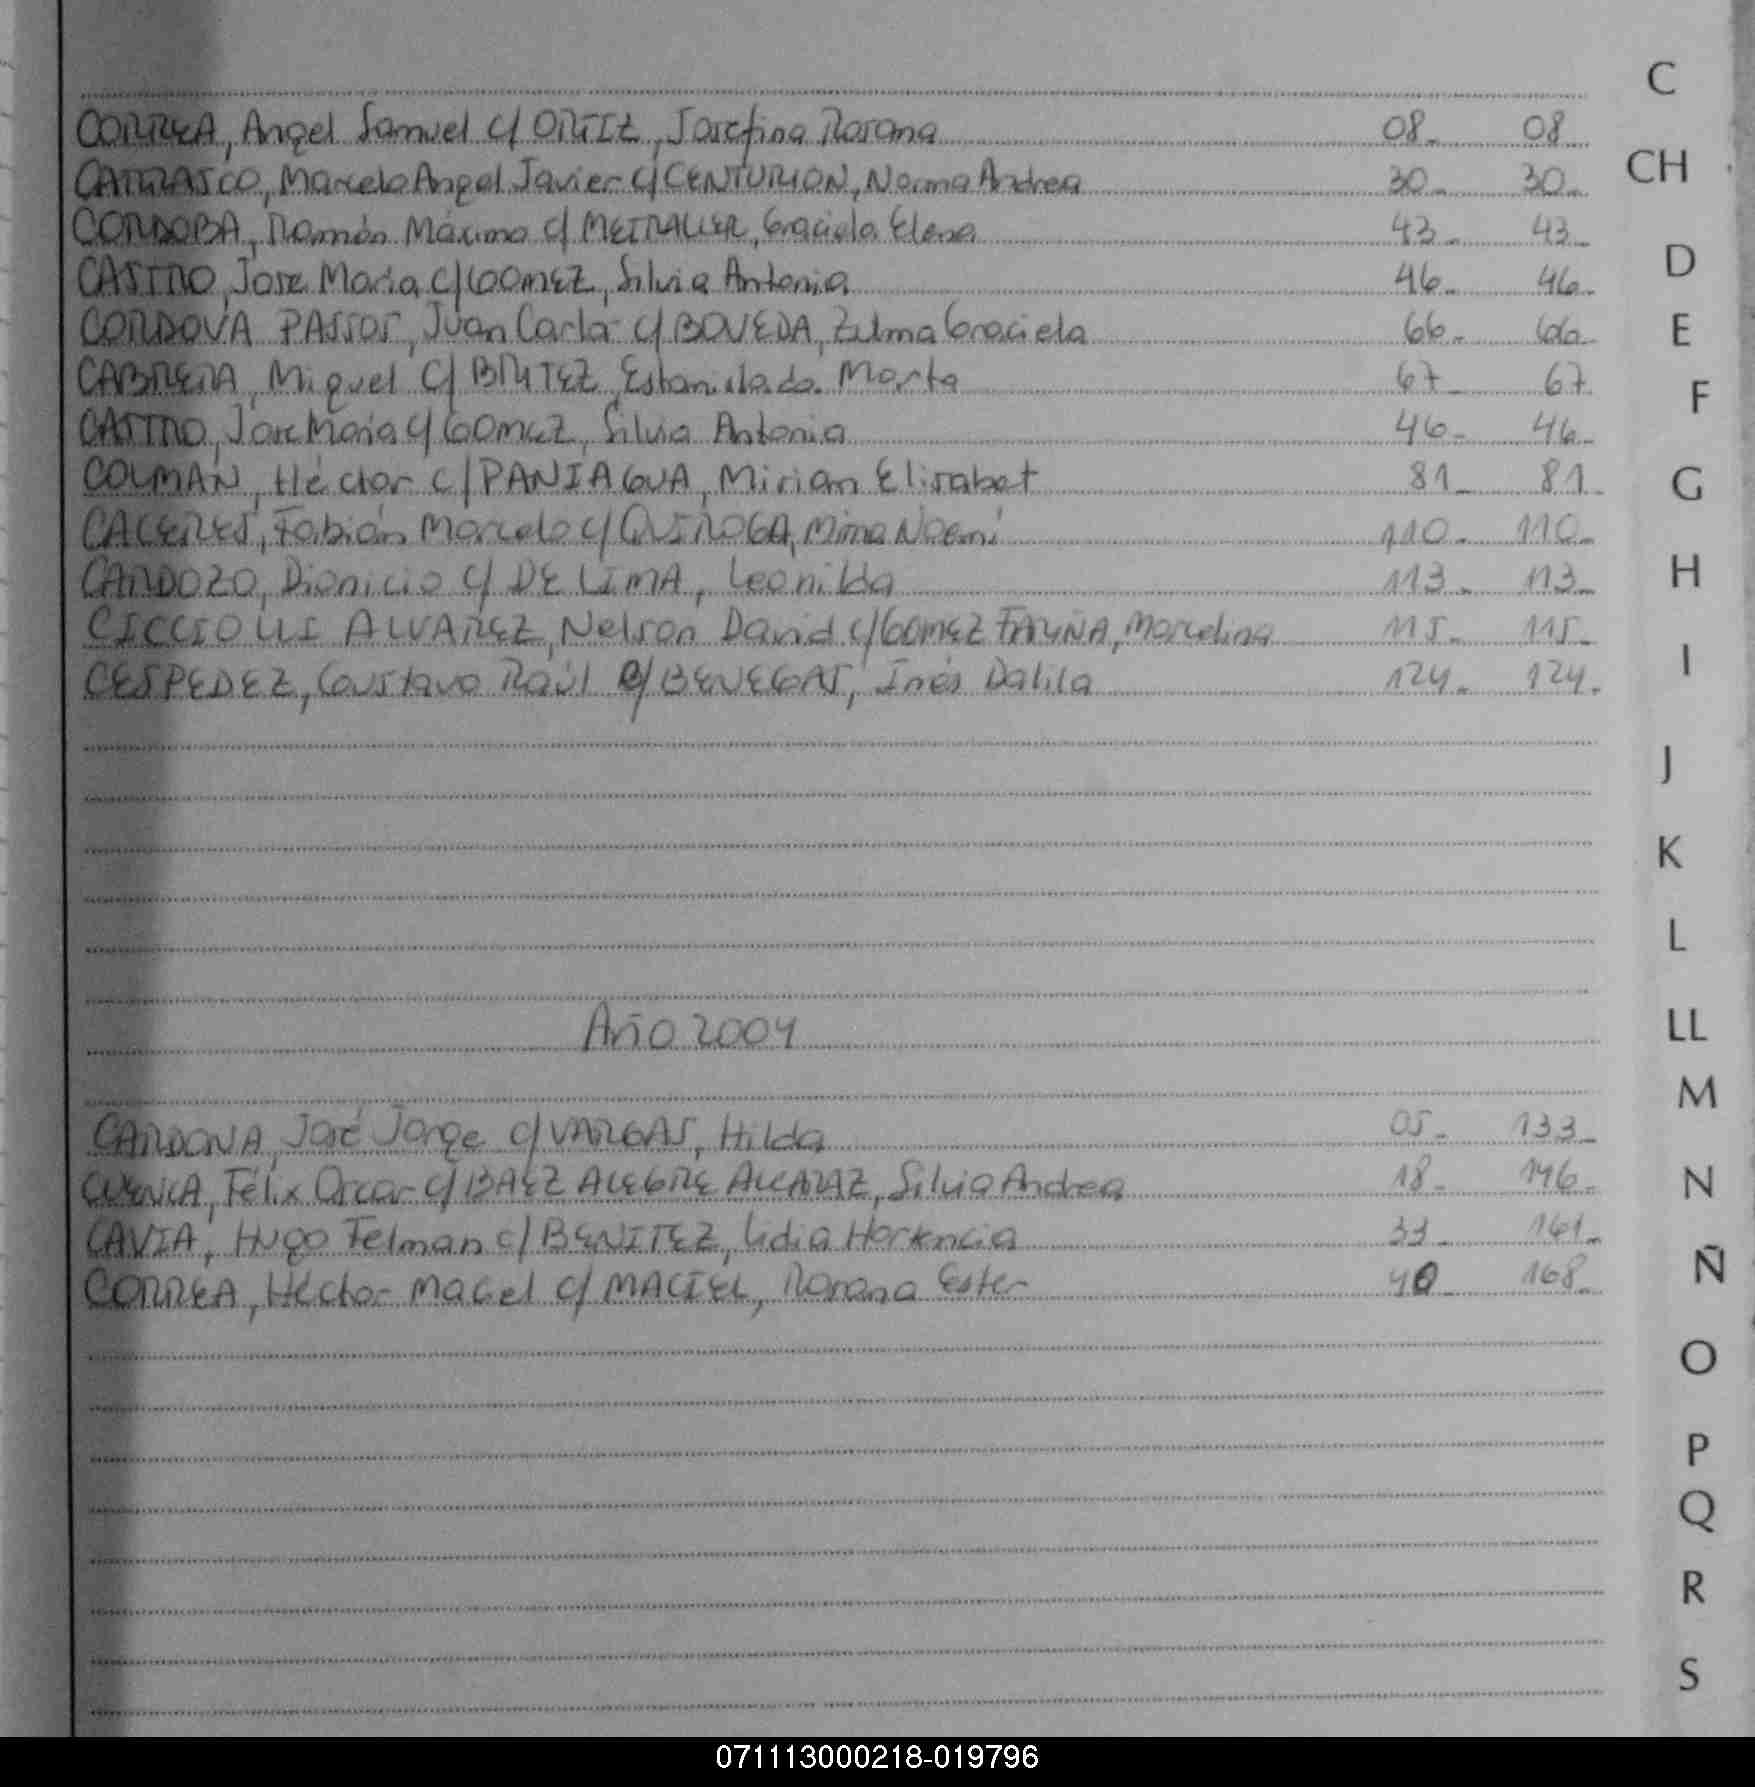 C
CORREA, Angel Samuel c/ ORTIZ, Josefina Rosana 08_ 08
CH
CARRASCO, Marcelo Angel Javier c/ CENTURION, Norma Andrea 30_ 30_
CORDOBA, Ramón Máximo c/ METRALLER, Graciela Elena 43_ 43_
D
CASTRO, Jose Maria c/ GOMEZ, Silvia Antonia 46_ 46_
CORDOVA PASSOS, Juan Carlos c/ BOVEDA, Zulma Graciela 66_ 66_
E
CABRERA, Miguel c/ BRITEZ, Estanislada Marta 67_ 67
F
CASTRO, Jose Maria c/ GOMEZ, Silvia Antonia 46_ 46_
COLMAN, Héctor c/ PANIAGUA, Mirian Elisabet 81_ 81_
G
CACERES, Fabián Marcelo c/ QUIROGA, Mirna Noemí 110_ 110_
CARDOZO, Dionicio c/ DE LIMA, Leonilda 113_ 113_
H
CICCIOLLI ALVAREZ, Nelson David c/ GOMEZ FARIÑA, Marcelina 115_ 115_
I
CESPEDEZ, Gustavo Raúl c/ BENEGAS, Inés Dalila 124_ 124_
J
K
L
Año 2004
LL
M
CARDONA, José Jorge c/ VARGAS, Hilda 05_ 133_
CUENCA, Félix Oscar c/ BAEZ ALEGRE ALCARAZ, Silvia Andrea 18_ 146_
N
CAVIA, Hugo Felman c/ BENITEZ, Lidia Hortencia 33_ 161_
Ñ
CORREA, Héctor Magel c/ MACIEL, Rosana Ester 40_ 168_
O
P
Q
R
S
071113000218-019796